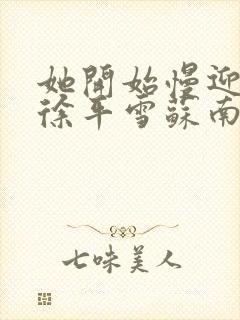 她開始慢迎
徐平雪蘇南
七味美人